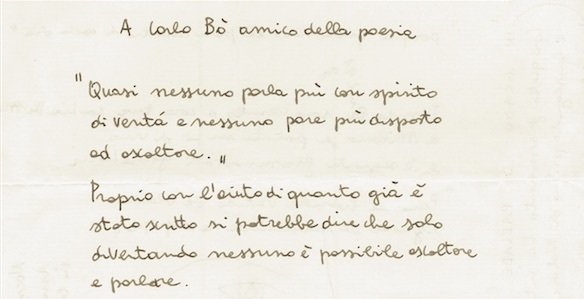 A Carlo Bò amico della poesia
"Quasi nessuno parla più con spirito
di veritá e nessuno pare più disposto
ad ascoltare."
Proprio con l'aiuto di quanto già è
stato scritto si potrebbe dire che solo
diventando nessuno è possibile ascoltare
e parlare.